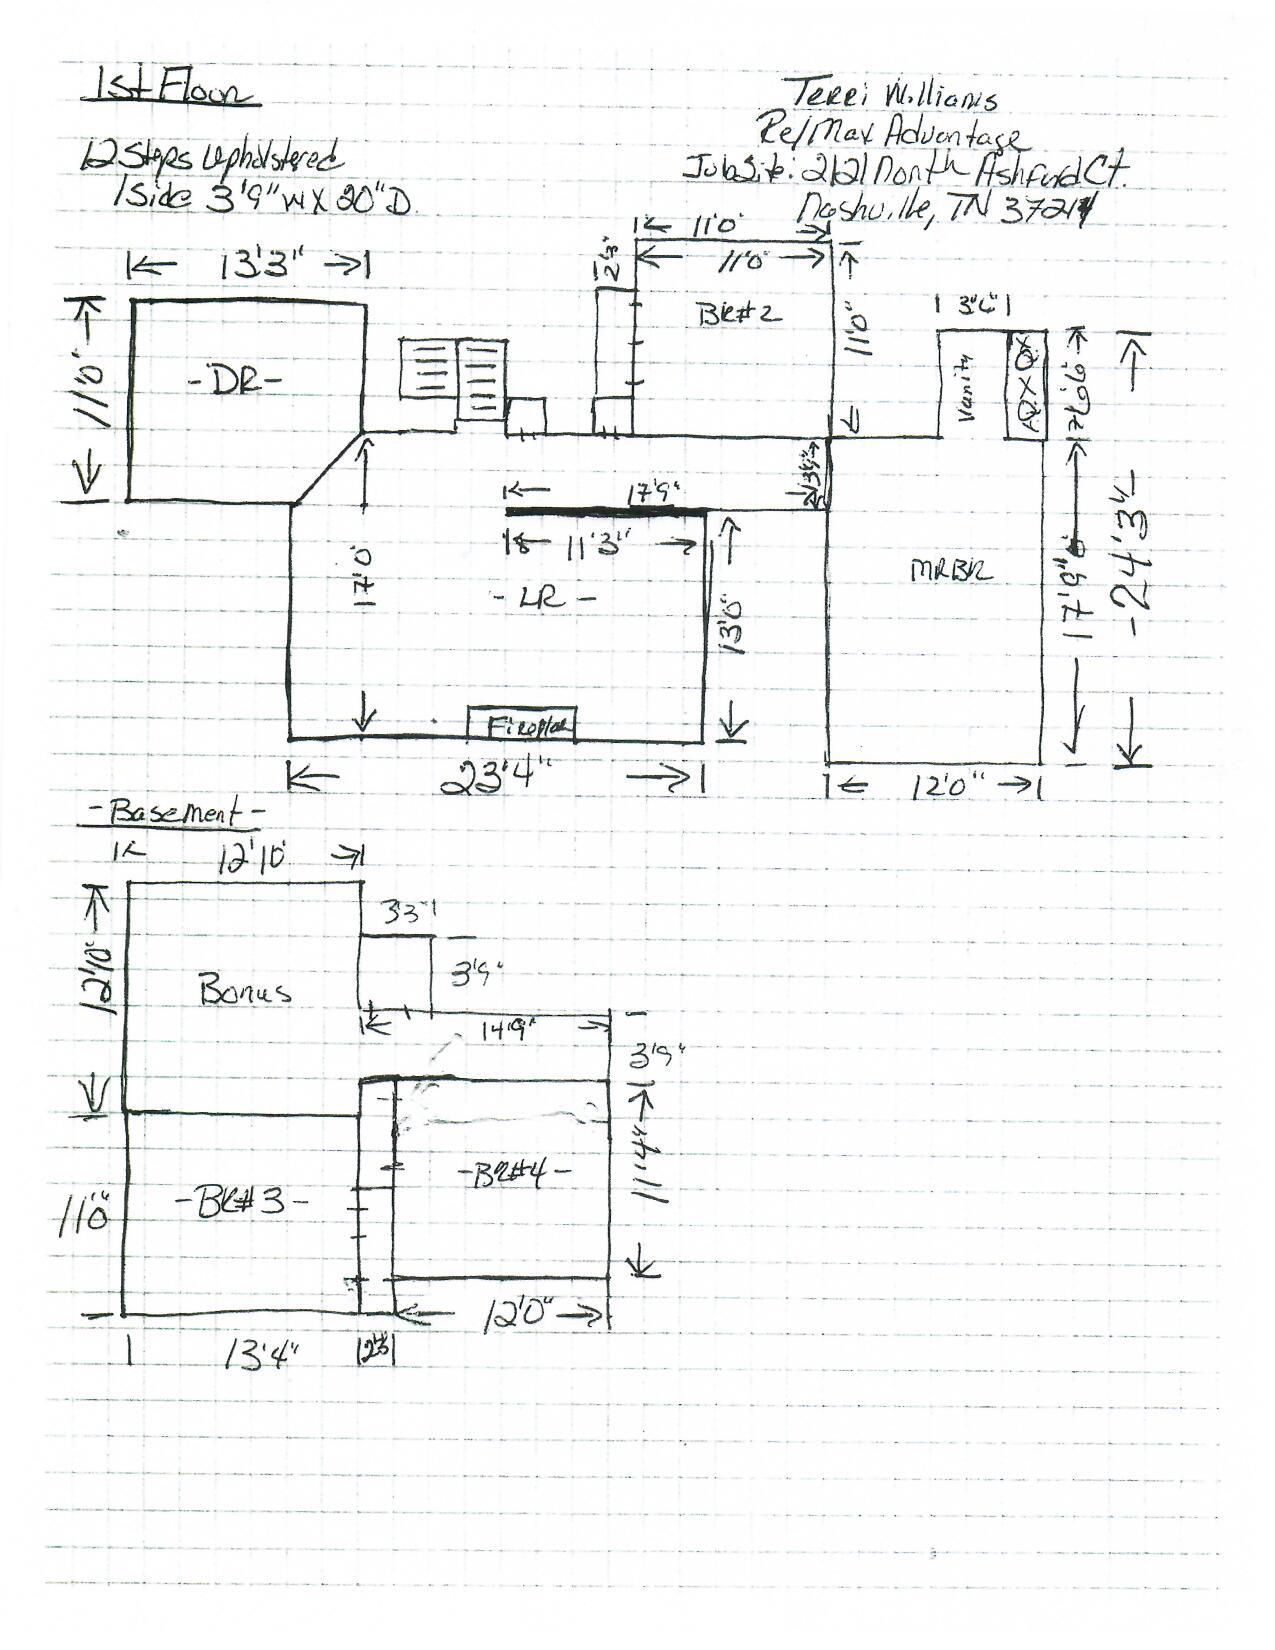 1st Floor
Terri Williams
Re/Max Advantage
12 Steps Upholstered
Jobsite: 2121 North Ashford Ct.
1 Side 3'9" W X 20" D.
Nashville, TN 37214
11'0"
13'3"
2'3"
11'0"
BR#2
11'0"
11'0"
- DR -
Vanity
17'9"
11'3"
17'0"
- LR -
13'0"
MRBR
17'9"
- 24'3" -
Fireplace
23'4"
12'0"
- Basement -
12'10"
3'3"
12'10"
Bonus
3'9"
14'9"
3'9"
11'4"
- BR#4 -
- BR#3 -
11'0"
12'0"
13'4"
2'3"